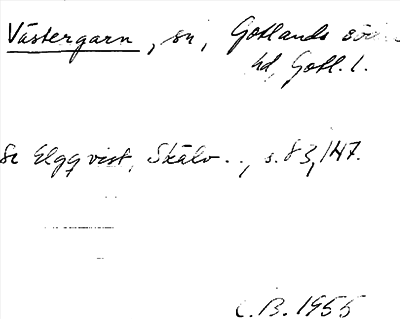 Västergarn, sn, Gotlands söd
hd, Gotl. l.
Se Elgqvist, Skälv.., s. 83, 147.
C.B. 1955